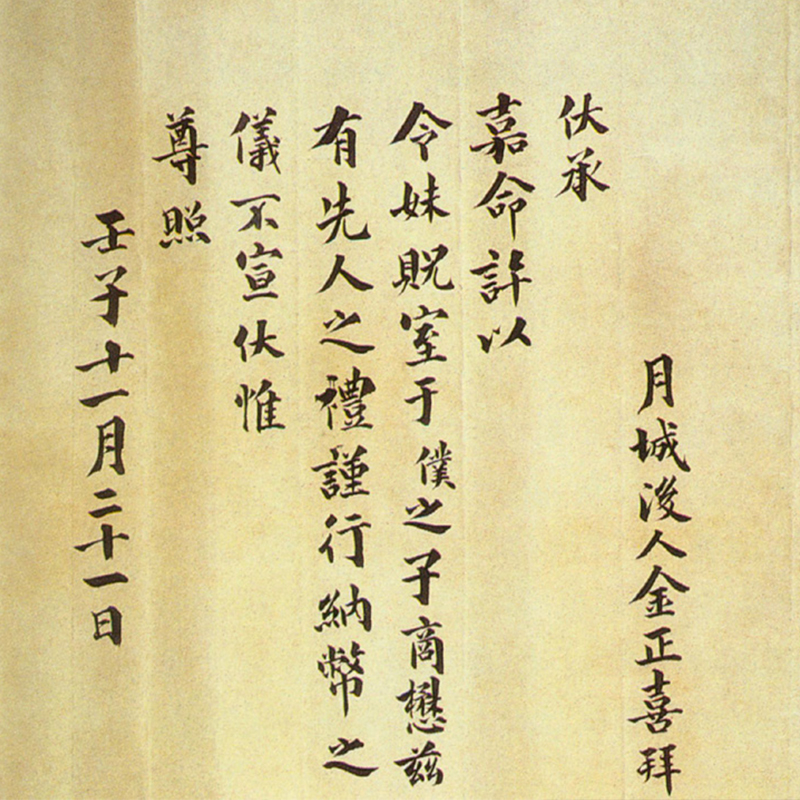 月城後人金正喜拜
伏承
嘉命許以
令妹貺室于僕之子商懋茲
有先人之禮謹行納幣之
儀不宣伏惟
尊照
壬子十一月二十一日